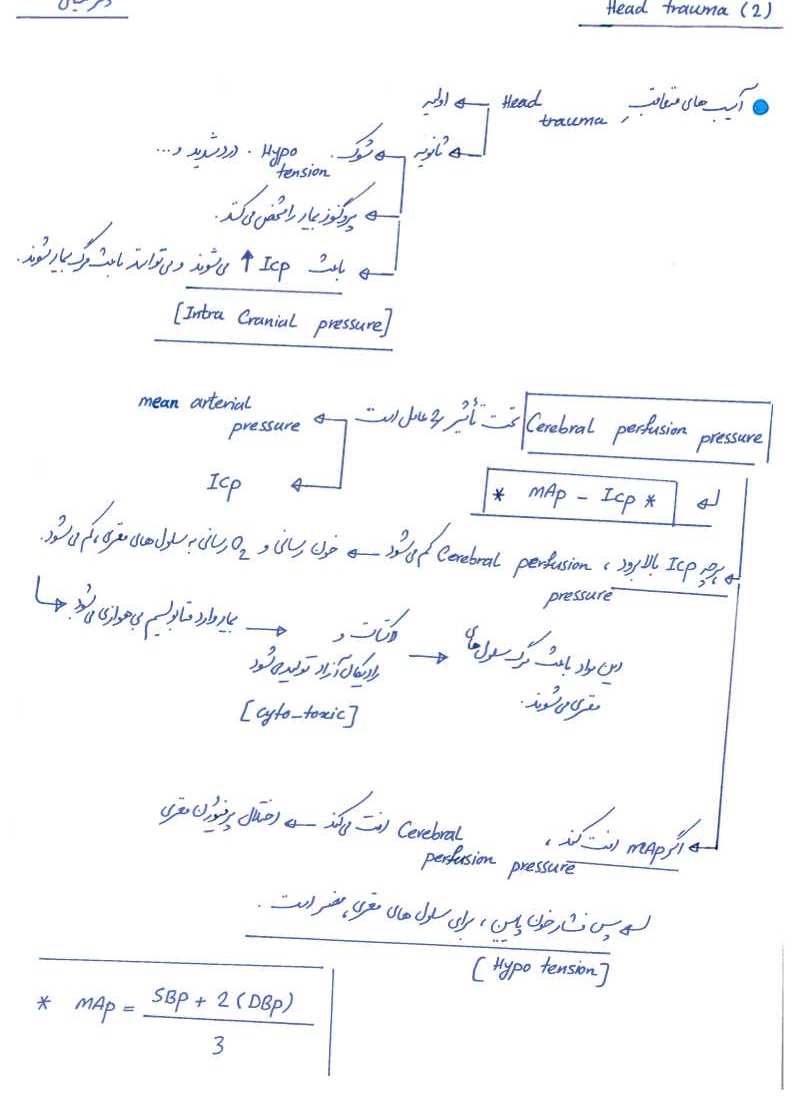 Head trauma (2)
آسیب های متعاقبِ Head trauma
اولیه
ثانویه
شوک. Hypo tension . درد شدید و...
پروگنوز بیمار را مشخص می کند.
باعث Icp ↑ می شوند و می توانند باعث مرگ بیمار شوند.
[Intra Cranial pressure]
Cerebral perfusion pressure تحت تأثیر 2 عامل است
mean arterial pressure
Icp
* mAp - Icp *
هرچه Icp بالا برود ، Cerebral perfusion pressure کم می شود خون رسانی و O2 رسانی به سلول های مغزی، کم می شود.
بیمار وارد متابولیسم بی هوازی می شود
لاکتات و رادیکال آزاد تولید می شود
[cyto-toxic]
این مواد باعث مرگ سلول های مغزی می شوند.
اگر mAp افت کند ، Cerebral perfusion pressure افت می کند اختلال پرفیوژن مغزی
پس فشار خون پایین ، برای سلول های مغزی، مضر است .
[Hypo tension]
* mAp = SBp + 2 (DBp) / 3